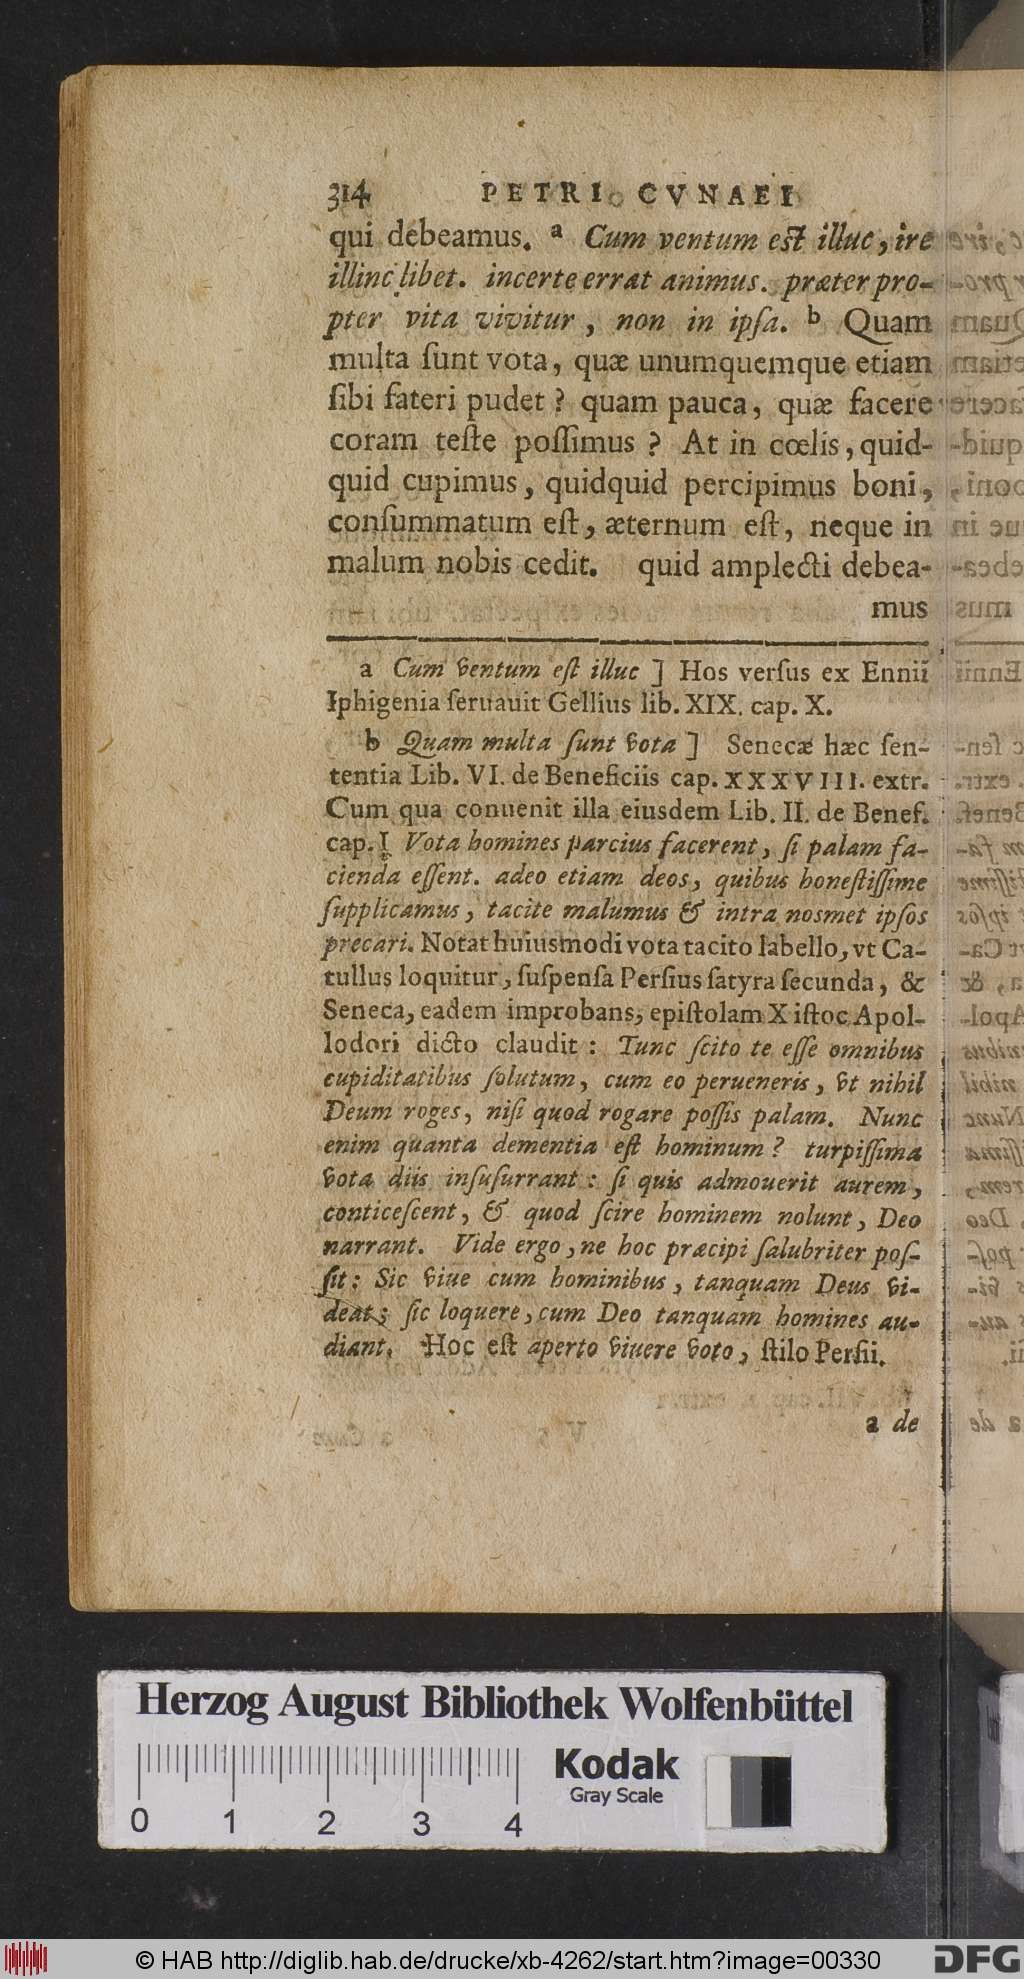 314 PETRI CVNAEI
qui debeamus. a Cum ventum est illuc, ire
illinc libet. incerte errat animus. præter pro-
pter vita vivitur, non in ipſa. b Quam
multa ſunt vota, quæ unumquemque etiam
ſibi fateri pudet? quam pauca, quæ facere
coram teſte poſſimus? At in cœlis, quid-
quid cupimus, quidquid percipimus boni,
conſummatum eſt, æternum eſt, neque in
malum nobis cedit. quid amplecti debea-
mus
a Cum ventum eſt illuc ] Hos verſus ex Ennii
Iphigenia ſeruauit Gellius lib. XIX. cap. X.
b Quam multa ſunt vota ] Senecæ hæc ſen-
tentia Lib. VI. de Beneficiis cap. XXXVIII. extr.
Cum qua conuenit illa eiusdem Lib. II. de Benef.
cap. I Vota homines parcius facerent, ſi palam fa-
cienda eſſent. adeo etiam deos, quibus honeſtiſſime
ſupplicamus, tacite malumus & intra nosmet ipſos
precari. Notat huiusmodi vota tacito labello, vt Ca-
tullus loquitur, ſuſpenſa Perſius ſatyra ſecunda, &
Seneca, eadem improbans, epiſtolam X iſtoc Apol-
lodori dicto claudit: Tunc ſcito te eſſe omnibus
cupiditatibus ſolutum, cum eo perueneris, vt nihil
Deum roges, niſi quod rogare poſſis palam. Nunc
enim quanta dementia eſt hominum? turpiſſima
vota diis inſuſurrant: ſi quis admouerit aurem,
conticeſcent, & quod ſcire hominem nolunt, Deo
narrant. Vide ergo, ne hoc præcipi ſalubriter poſ-
ſit: Sic viue cum hominibus, tanquam Deus vi-
deat; ſic loquere, cum Deo tanquam homines au-
diant. Hoc eſt aperto viuere voto, ſtilo Perſii.
a de
Herzog August Bibliothek Wolfenbüttel
Kodak
Gray Scale
0 1 2 3 4
© HAB http://diglib.hab.de/drucke/xb-4262/start.htm?image=00330
DFG